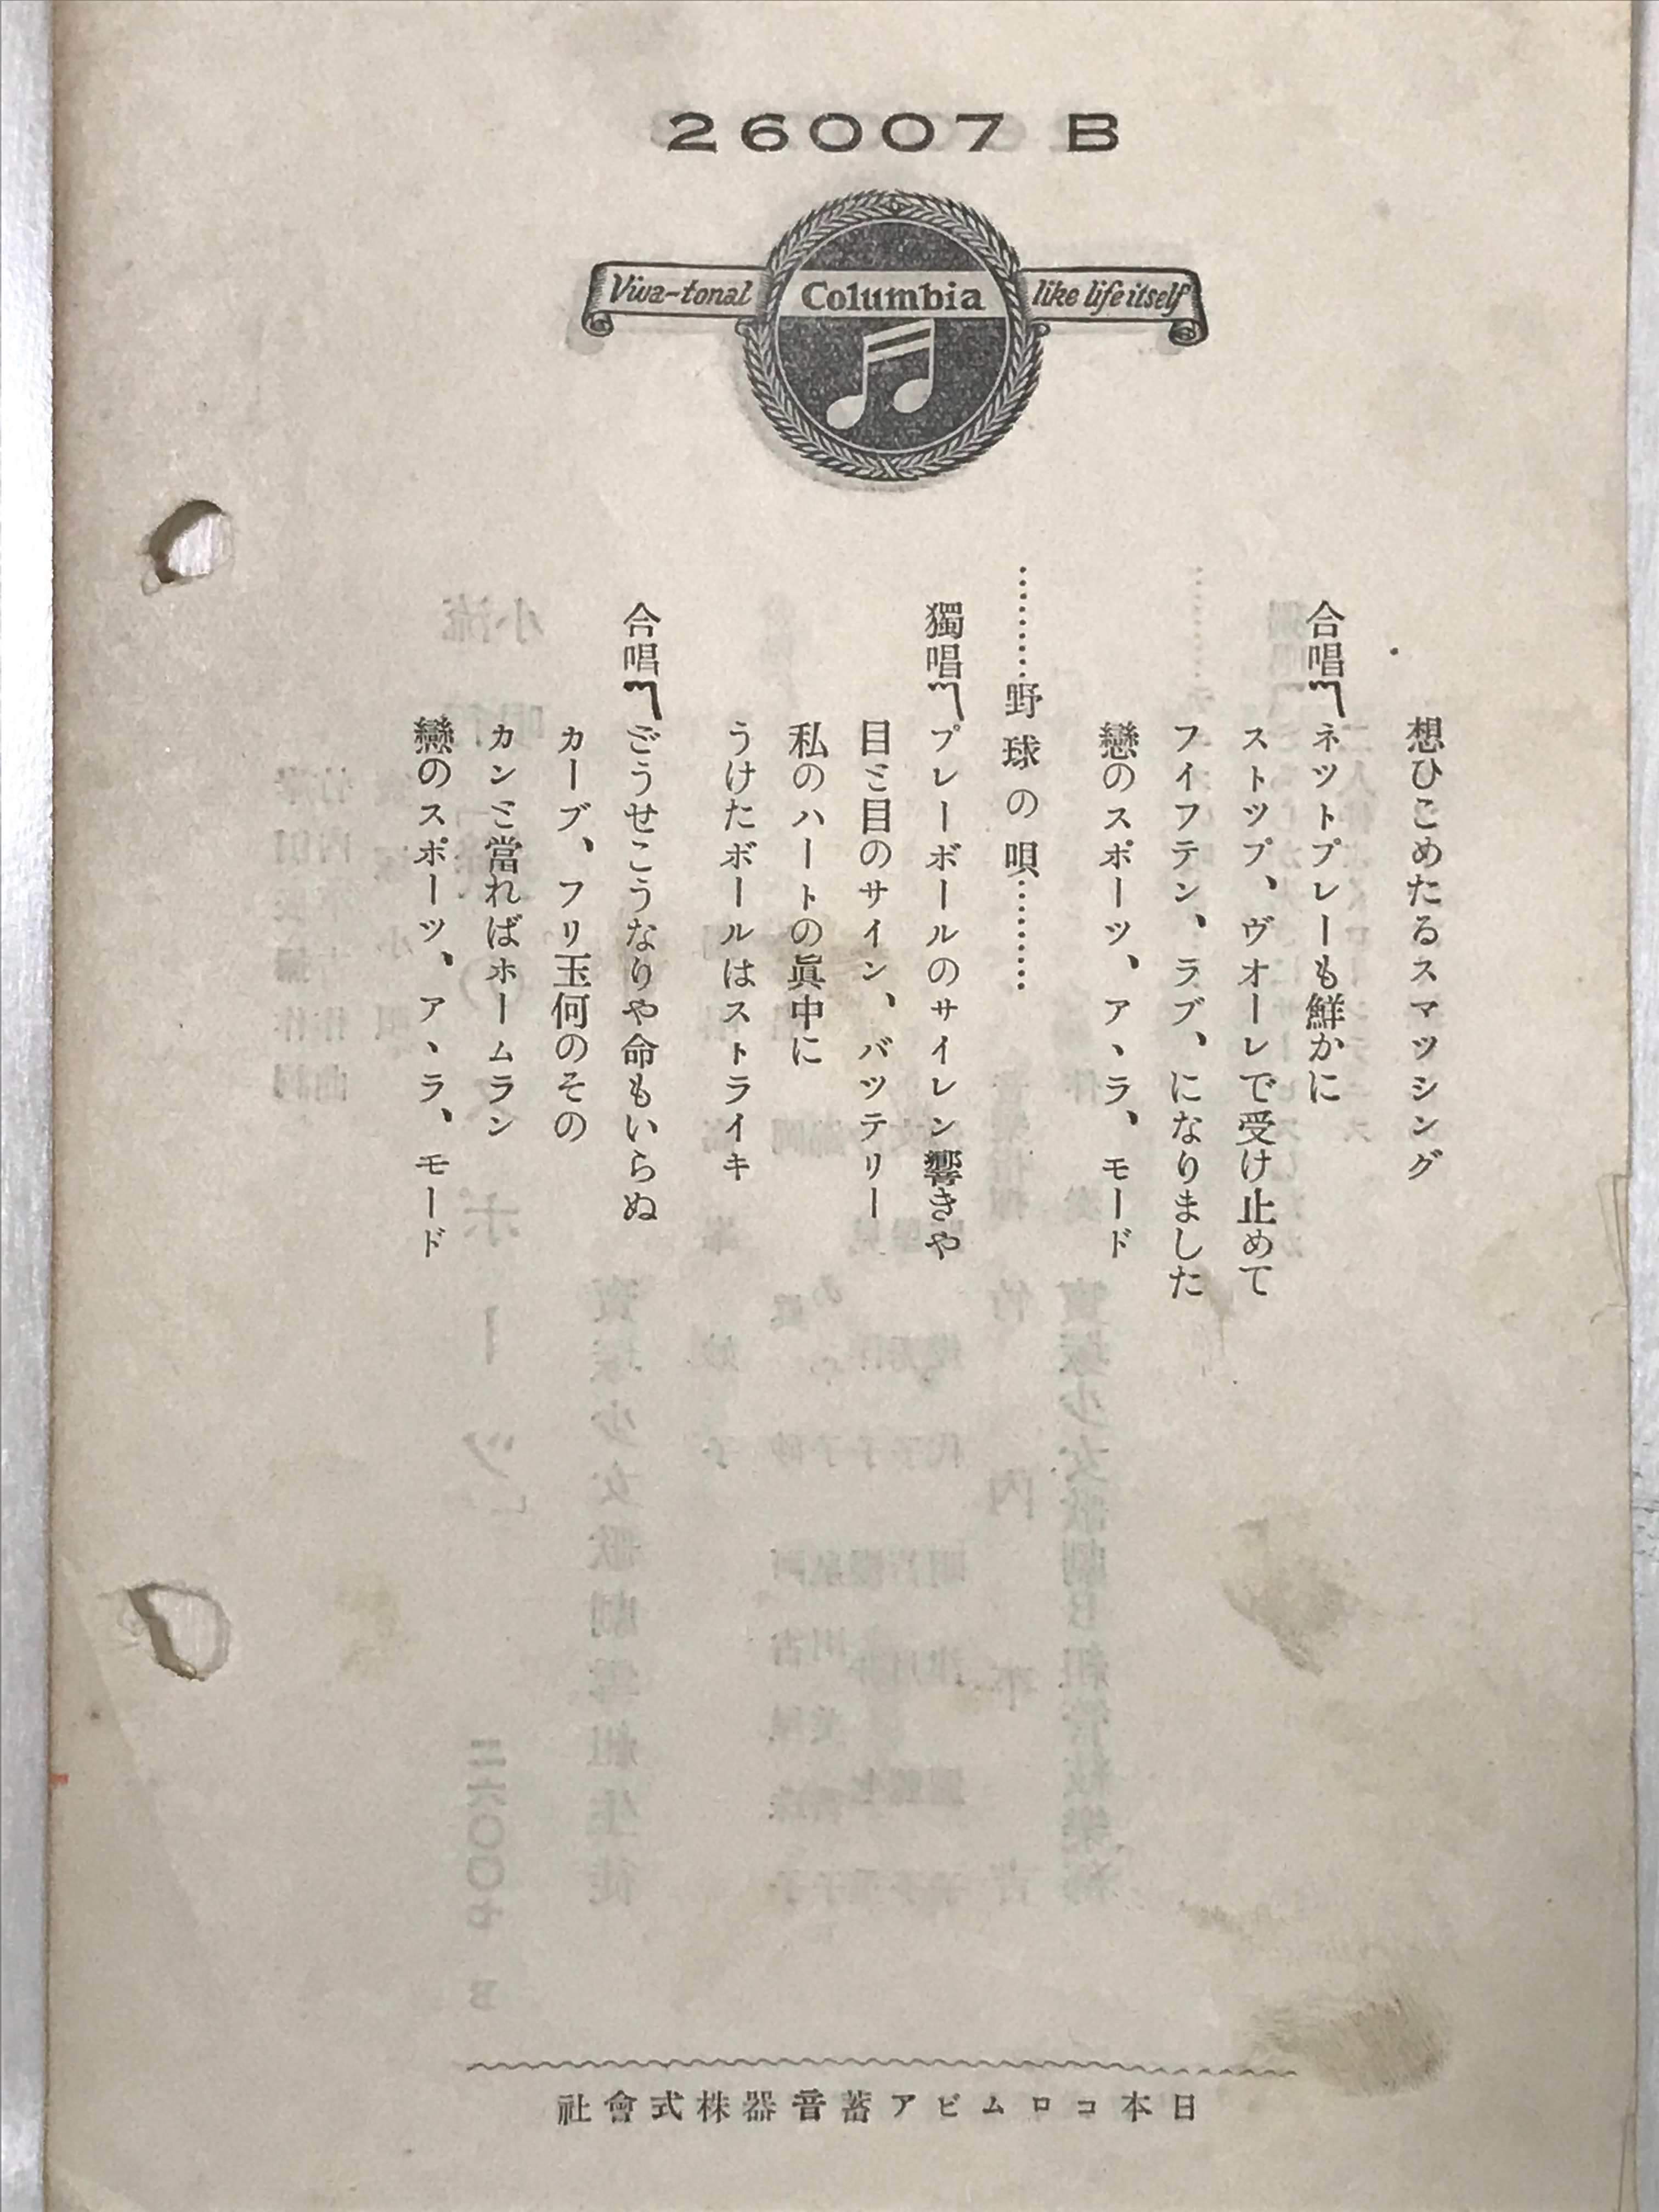 26007 B
Viva-tonal Columbia like life itself
想ひこめたるスマツシング
合唱〽ネツトプレーも鮮かに
ストツプ、ヴオーレで受け止めて
フイフテン、ラブ、になりました
戀のスポーツ、ア、ラ、モード
…………野球の唄…………
獨唱〽プレーボールのサイレン響きや
目と目のサイン、バツテリー
私のハートの眞中に
うけたボールはストライキ
合唱〽どうせこうなりや命もいらぬ
カーブ、フリ玉何のその
カンと當ればホームラン
戀のスポーツ、ア、ラ、モード
社會式株器音蓄アビムロコ本日